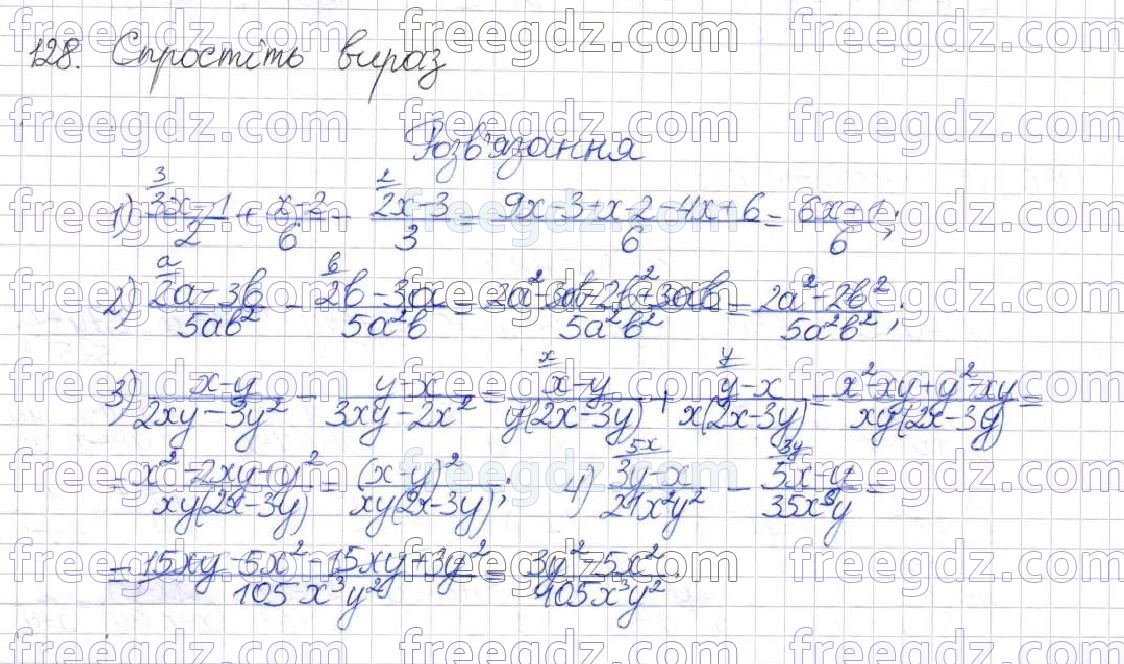 128. Спростіть вираз
Розв'язання
1) (3x-1)/2 + (x-2)/6 - (2x-3)/3 = (9x-3+x-2-4x+6)/6 = (6x+1)/6;
2) (2a-3b)/5ab² - (2b-3a)/5a²b = (2a²-3ab-2b²+3ab)/5a²b² = (2a²-2b²)/5a²b²;
3) (x-y)/(2xy-3y²) - (y-x)/(3xy-2x²) = (x-y)/y(2x-3y) + (y-x)/x(2x-3y) = (x²-xy+y²-xy)/xy(2x-3y) =
= (x²-2xy+y²)/xy(2x-3y) = (x-y)²/xy(2x-3y); 4) (3y-x)/21x²y² - (5x-y)/35x³y =
= (15xy-5x²-15xy+3y²)/105x³y² = (3y²-5x²)/105x³y².
freegdz.com